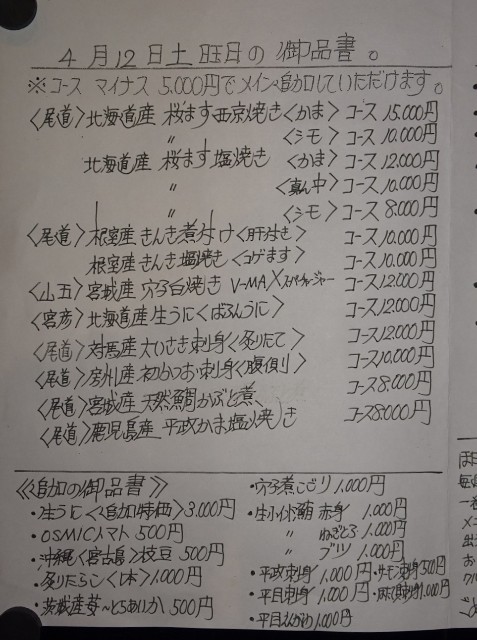 4月12日土曜日の御品書。
※コース マイナス 5.000円でメイン追加していただけます。
〈尾道〉北海道産 桜ます西京焼き〈かま〉コース 15.000円
〃 〈シモ〉コース 10.000円
北海道産 桜ます塩焼き 〈かま〉コース 12.000円
〃 〈真ん中〉コース 10.000円
〈シモ〉コース 8.000円
〈尾道〉根室産きんき煮付け〈肝付き〉 コース 10.000円
根室産きんき塩焼き〈コゲます〉 コース 10.000円
〈山五〉宮城産 穴子白焼き V-MAXスーパーチャージャー コース 12.000円
〈宮彦〉北海道産生うに〈ばふんうに〉 コース 12.000円
〈尾道〉対馬産太いさき刺身〈炙りたて〉 コース 12.000円
〈尾道〉房州産初かつお刺身〈腹側〉 コース 10.000円
〈尾道〉宮城産天然鯛かぶと煮、 コース 8.000円
〈尾道〉鹿児島産 平政かま塩焼き コース 8.000円
《追加の御品書》
・生うに〈追加特価〉3.000円
・OSMICトマト 500円
・沖縄〈宮古島〉枝豆 500円
・炙りたらこ〈1本〉1.000円
・茨城産苺〜とちあいか 500円
・穴子煮こごり 1.000円
・生インド鮪 赤身 1.000円
〃 ねぎとろ 1.000円
〃 ブツ 1.000円
・平政刺身 1.000円 ・サーモン刺身 500円
・平目刺身 1.000円
・平目えんがわ 1.000円